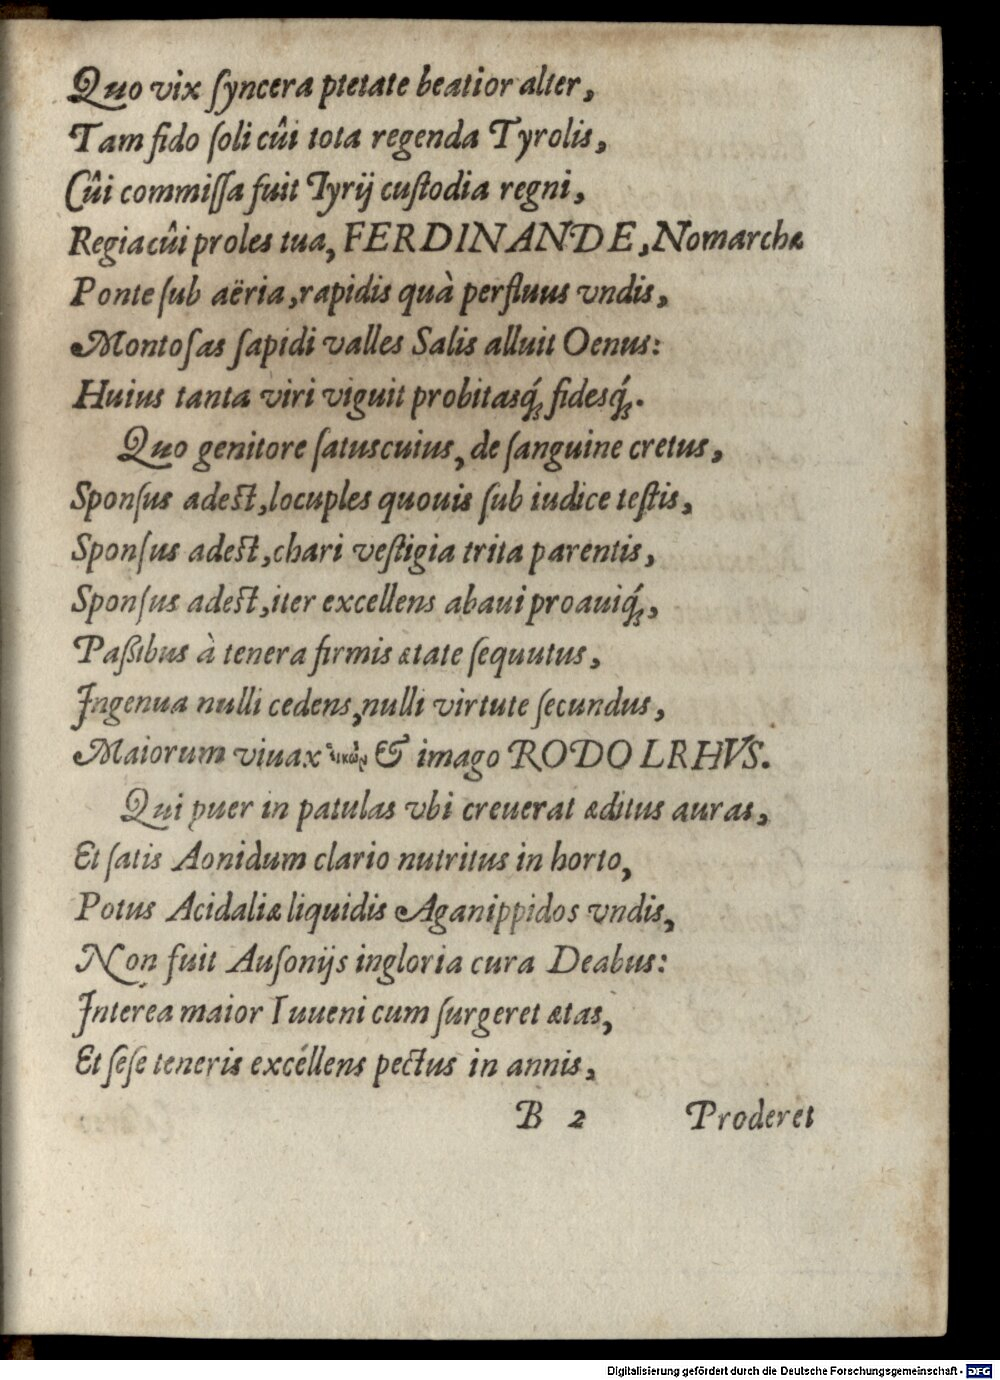 Quo vix ſyncera pietate beatior alter,
Tam fido ſoli cûi tota regenda Tyrolis,
Cûi commiſſa fuit Iyrij cuſtodia regni,
Regia cûi proles tua, FERDINANDE, Nomarchæ
Ponte ſub aëria, rapidis quà perfluus vndis,
Montoſas ſapidi valles Salis alluit Oenus:
Huius tanta viri viguit probitasq́; fidesq́;.
Quo genitore ſatus cuius, de ſanguine cretus,
Sponſus adeſt, locuples quouis ſub iudice teſtis,
Sponſus adeſt, chari veſtigia trita parentis,
Sponſus adeſt, iter excellens abaui proauiq́;,
Paßibus à tenera firmis ætate ſequutus,
Ingenua nulli cedens, nulli virtute ſecundus,
Maiorum viuax & imago RODOLRHVS.
Qui puer in patulas vbi creuerat æditus auras,
Et ſatis Aonidum clario nutritus in horto,
Potus Acidaliæ liquidis Aganippidos vndis,
Non fuit Auſonijs ingloria cura Deabus:
Interea maior Iuueni cum ſurgeret ætas,
Et ſeſe teneris excéllens pectus in annis,
B 2 Proderet
Digitalisierung gefördert durch die Deutsche Forschungsgemeinschaft - DFG